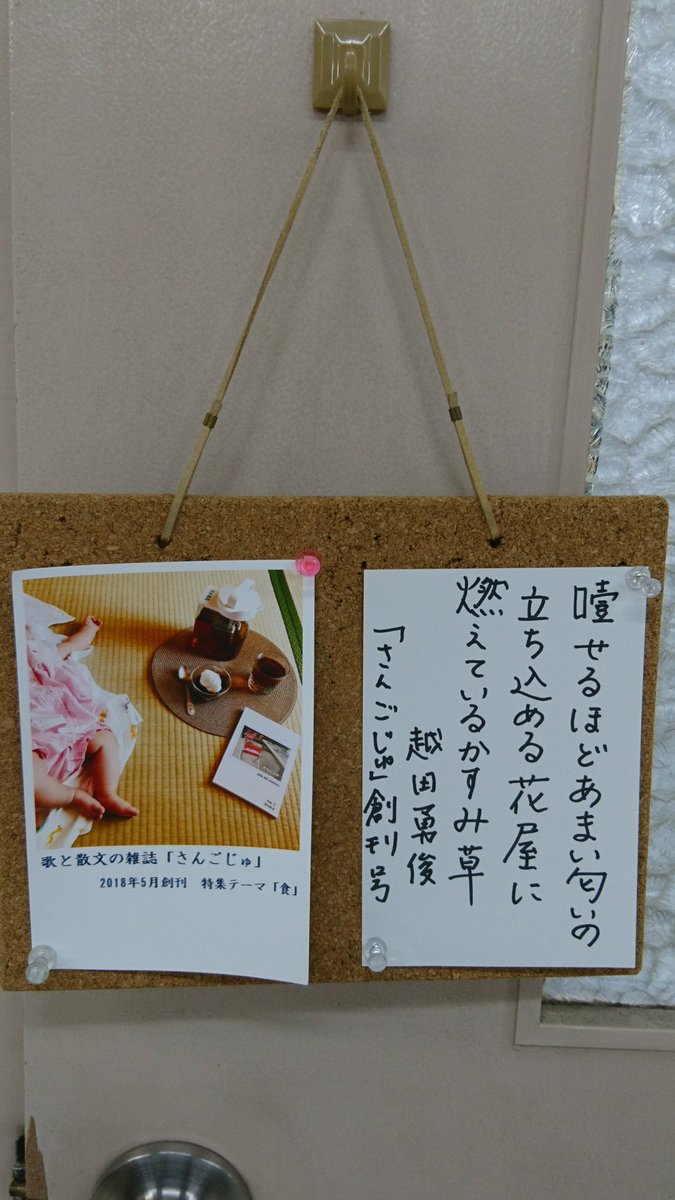 噎せるほどあまい匂いの
立ち込める花屋に
燃えているかすみ草
越田勇俊
「さんごじゅ」創刊号
歌と散文の雑誌「さんごじゅ」
2018年5月創刊　特集テーマ「食」